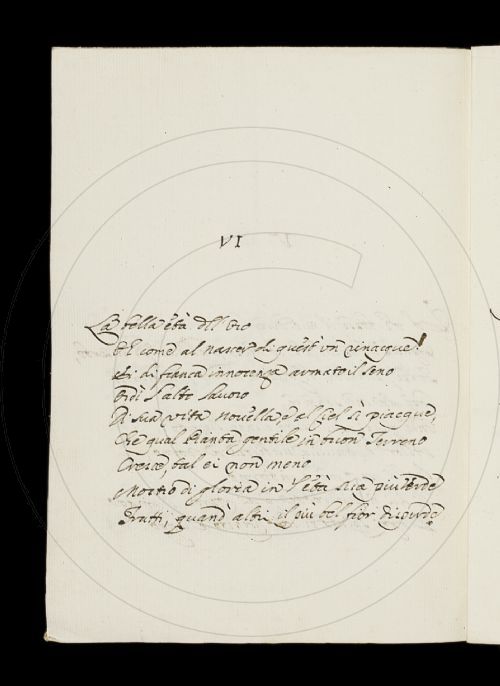 VI
La bella età dell'oro
E come al nascer di quest'un rinacque!
Ei di franca innocenza armato il seno
Ordì l'alto lavoro
Di sua vita novella, e al Ciel sì piacque,
Che qual pianta gentile in buon Terreno
Cresce, tal ei non meno
Mostrò di gloria in l'età sua più verde
Frutti, quand'altri il più bel fior disperde